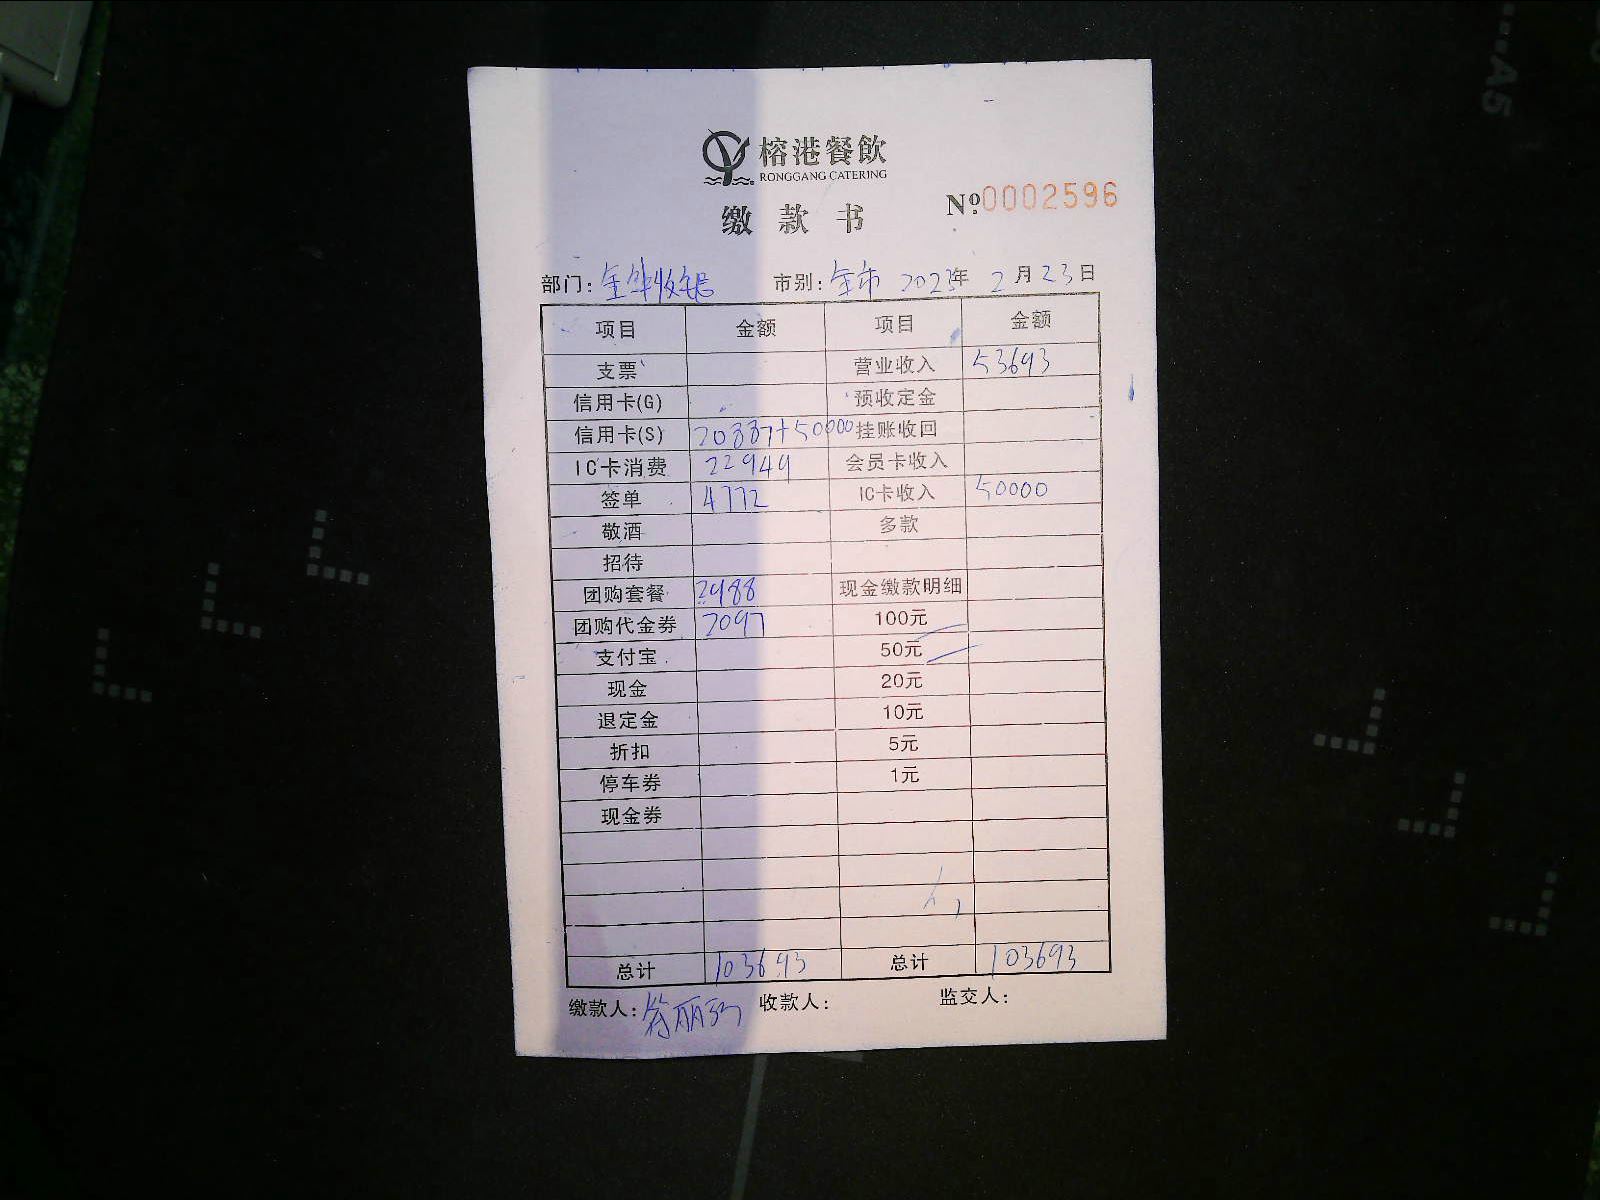 榕港餐飲
RONGGANG CATERING
缴款书
Nº:0002596
部门: 金华收银 市别: 全市 2023年 2月23日
项目 金额 项目 金额
支票 营业收入 53693
信用卡(G) 预收定金
信用卡(S) 20887+50000 挂账收回
IC卡消费 22949 会员卡收入
签单 4772 IC卡收入 50000
敬酒 多款
招待
团购套餐 2988 现金缴款明细
团购代金券 2097 100元
支付宝 50元
现金 20元
退定金 10元
折扣 5元
停车券 1元
现金券
总计 103693 总计 103693
缴款人: 收款人: 监交人:
A5